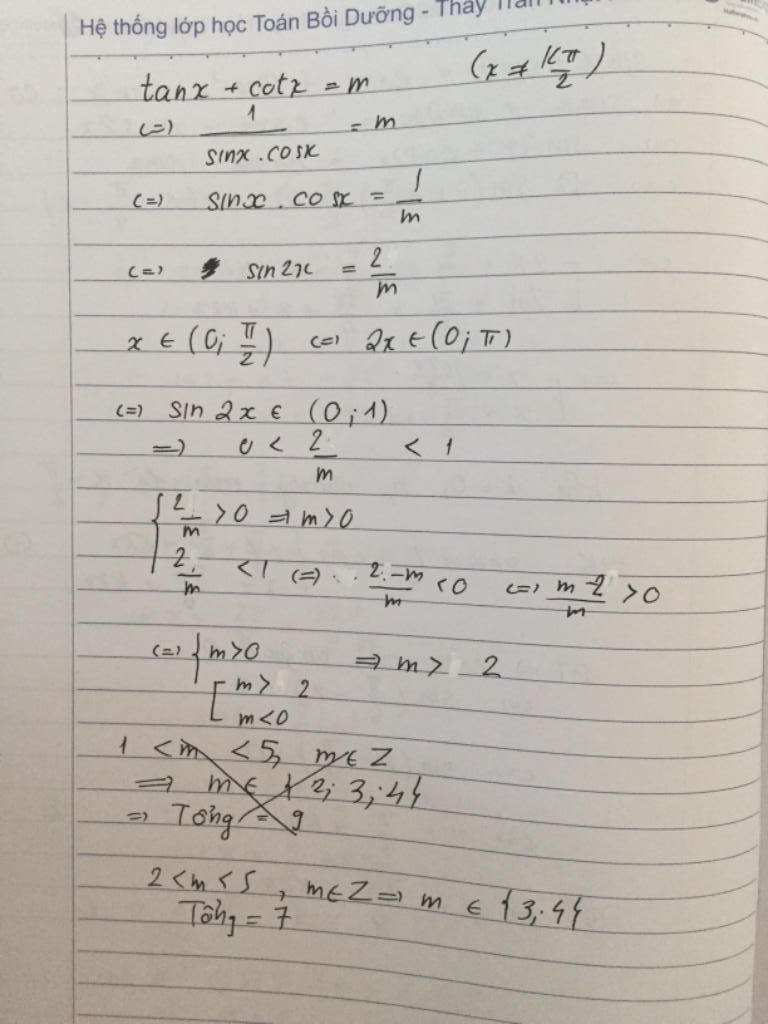 Hệ thống lớp học Toán Bồi Dưỡng - Thầy Trần
tanx + cotx = m (x ≠ kπ/2)
<=> 1/(sinx.cosx) = m
<=> sinx.cosx = 1/m
<=> sin2x = 2/m
x ∈ (0; π/2) <=> 2x ∈ (0; π)
<=> sin 2x ∈ (0;1)
=> 0 < 2/m < 1
{ 2/m > 0 => m > 0
2/m < 1 <=> (2-m)/m < 0 <=> (m-2)/m > 0
<=> { m > 0 => m > 2
[ m > 2
m < 0
1 < m < 5, m ∈ Z
=> m ∈ {2; 3; 4}
=> Tổng = 9
2 < m < 5, m ∈ Z => m ∈ {3; 4}
Tổng = 7